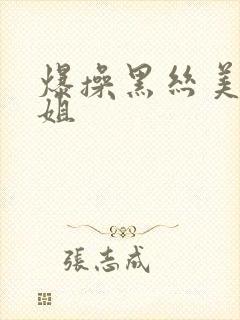 爆操黑丝美
姐
張志成